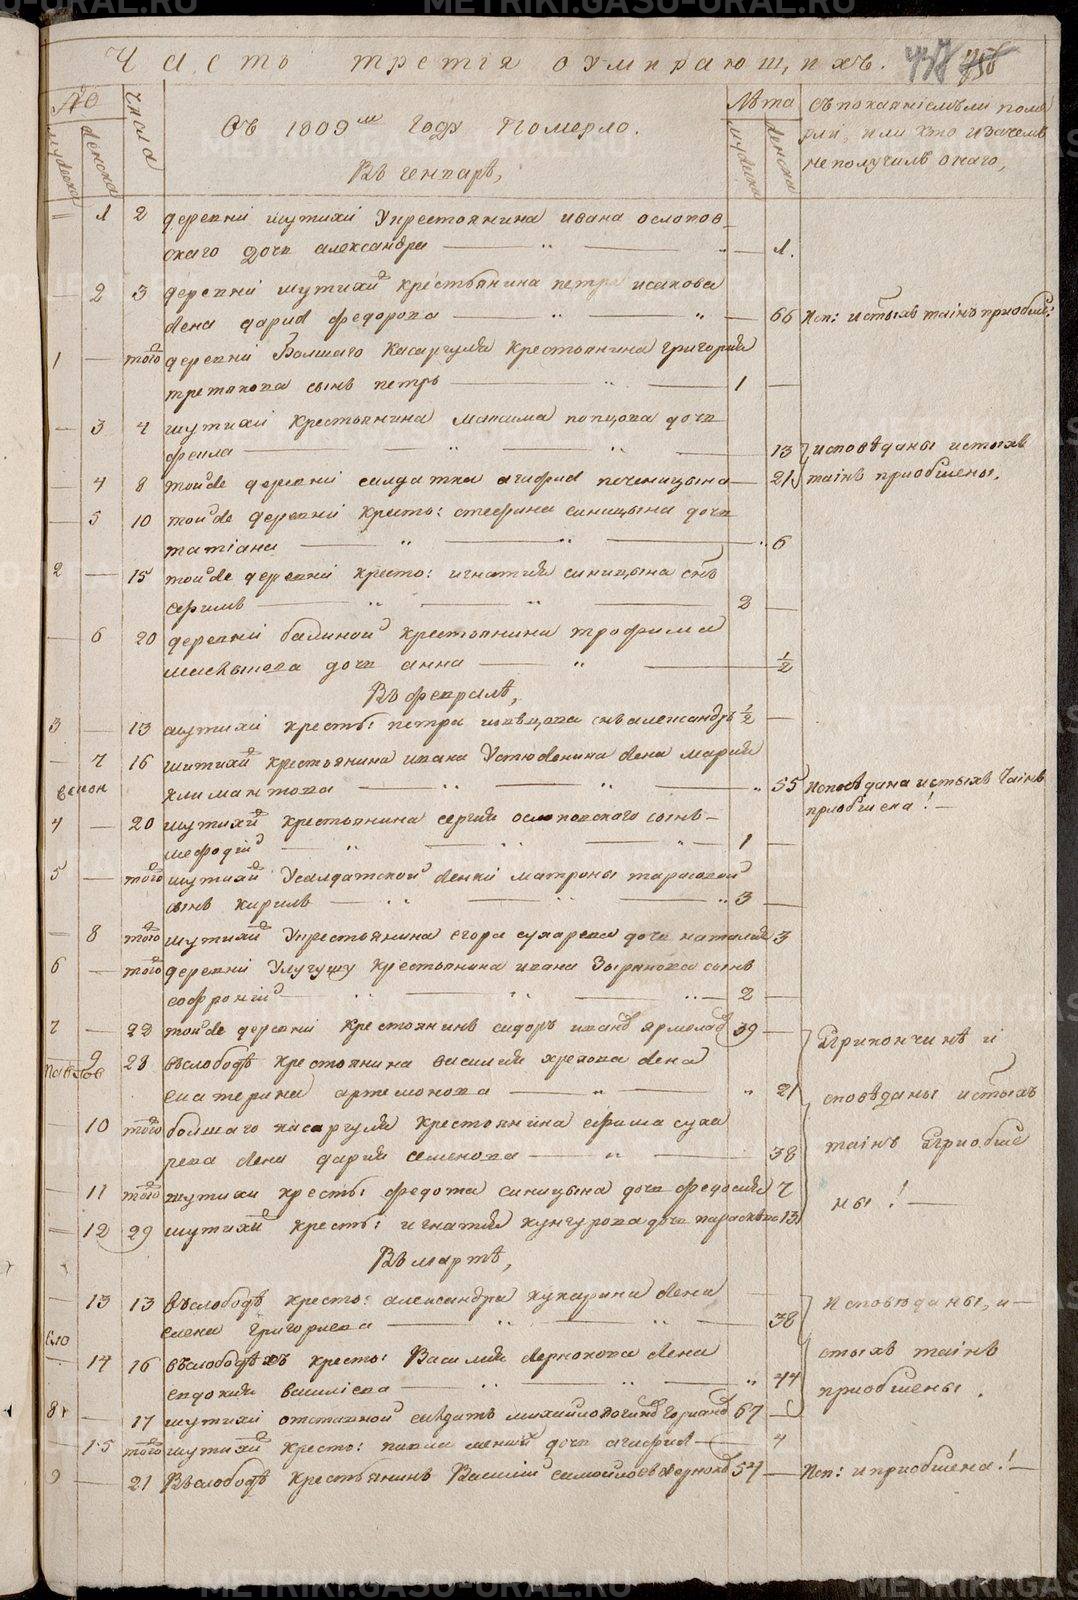 Часть третiя оумирающихъ.
№
мужеска
женска
числа
Въ 1809м году померло.
Въ генварѣ,
Лѣта
мужеска
женска
Съ покаянiемъ ли поме
рли, или кто и зачемъ
не получилъ онаго,
1 2 деревни шутихи у крестьянина ивана ослопов
скаго дочь александра 1.
2 3 деревни шутихи крестьянина петра исакова
жена дарья федорова 66 Исп: и стыхъ таинъ прiобще:
1 того деревни Большаго Касаргуля крестьянина григория
третьякова сынъ петръ 1
3 4 шутихи крестьянина максима попцова дочь
фекла 13 исповѣданы и стыхъ
4 8 тойже деревни салдатка агафья печеницына 21 таинъ прiобщены.
5 10 тойже деревни кресть: стефана синицына дочь
татiана 6
2 15 тойже деревни кресть: игнатия синицына снъ
ефимъ 2
6 20 деревни балиной крестьянина трофима
дочь анна 1/2
Въ февралѣ,
3 13 шутихи кресть: петра снъ александръ 1/2
7 16 шутихи крестьянина ивана Устюжанина жена мария
климантова 55 Исповѣдана и стыхъ таинъ
прiобщена! –
4 20 шутихи крестьянина сергия ослоповскаго сынъ
мефодiй 1
5 того шутихи у салдатской женки матроны тарасовой
сынъ кирилъ 3
8 того шутихи у крестьянина егора сухарева дочь наталия 3
6 того деревни Улугушу крестьянина ивана Зырянова сынъ
софронiй 2
7 22 тойже деревни крестьянинъ сидоръ ивановъ 39
9 28 въслободѣ крестьянина василия жена
екатерина артемонова 21
При кончинѣ и
сповѣданы и стыхъ
таинъ прiобще
ны! –
10 того большаго касаргуля крестьянина ефима суха
рева жена дария семенова 38
11 того шутихи кресть: федота синицына дочь федосия 7
12 29 шутихи кресть: игнатия кунгурова дочь 13
Въ мартѣ,
13 13 Въслободѣ кресть: александра кукарина жена
елена григорьева 38
Исповѣданы, и
стыхъ таинъ
прiобщены.
14 16 въслободѣ кресть: Василия жернокова жена
евдокия василiева 44
8 17 шутихи отставной салдатъ михайло 67
15 того шутихи кресть: павла дочь агафия 4
9 21 Въслободѣ крестьянинъ Василiй самойловъ жерноковъ 54 Исп: и прiобщена! –